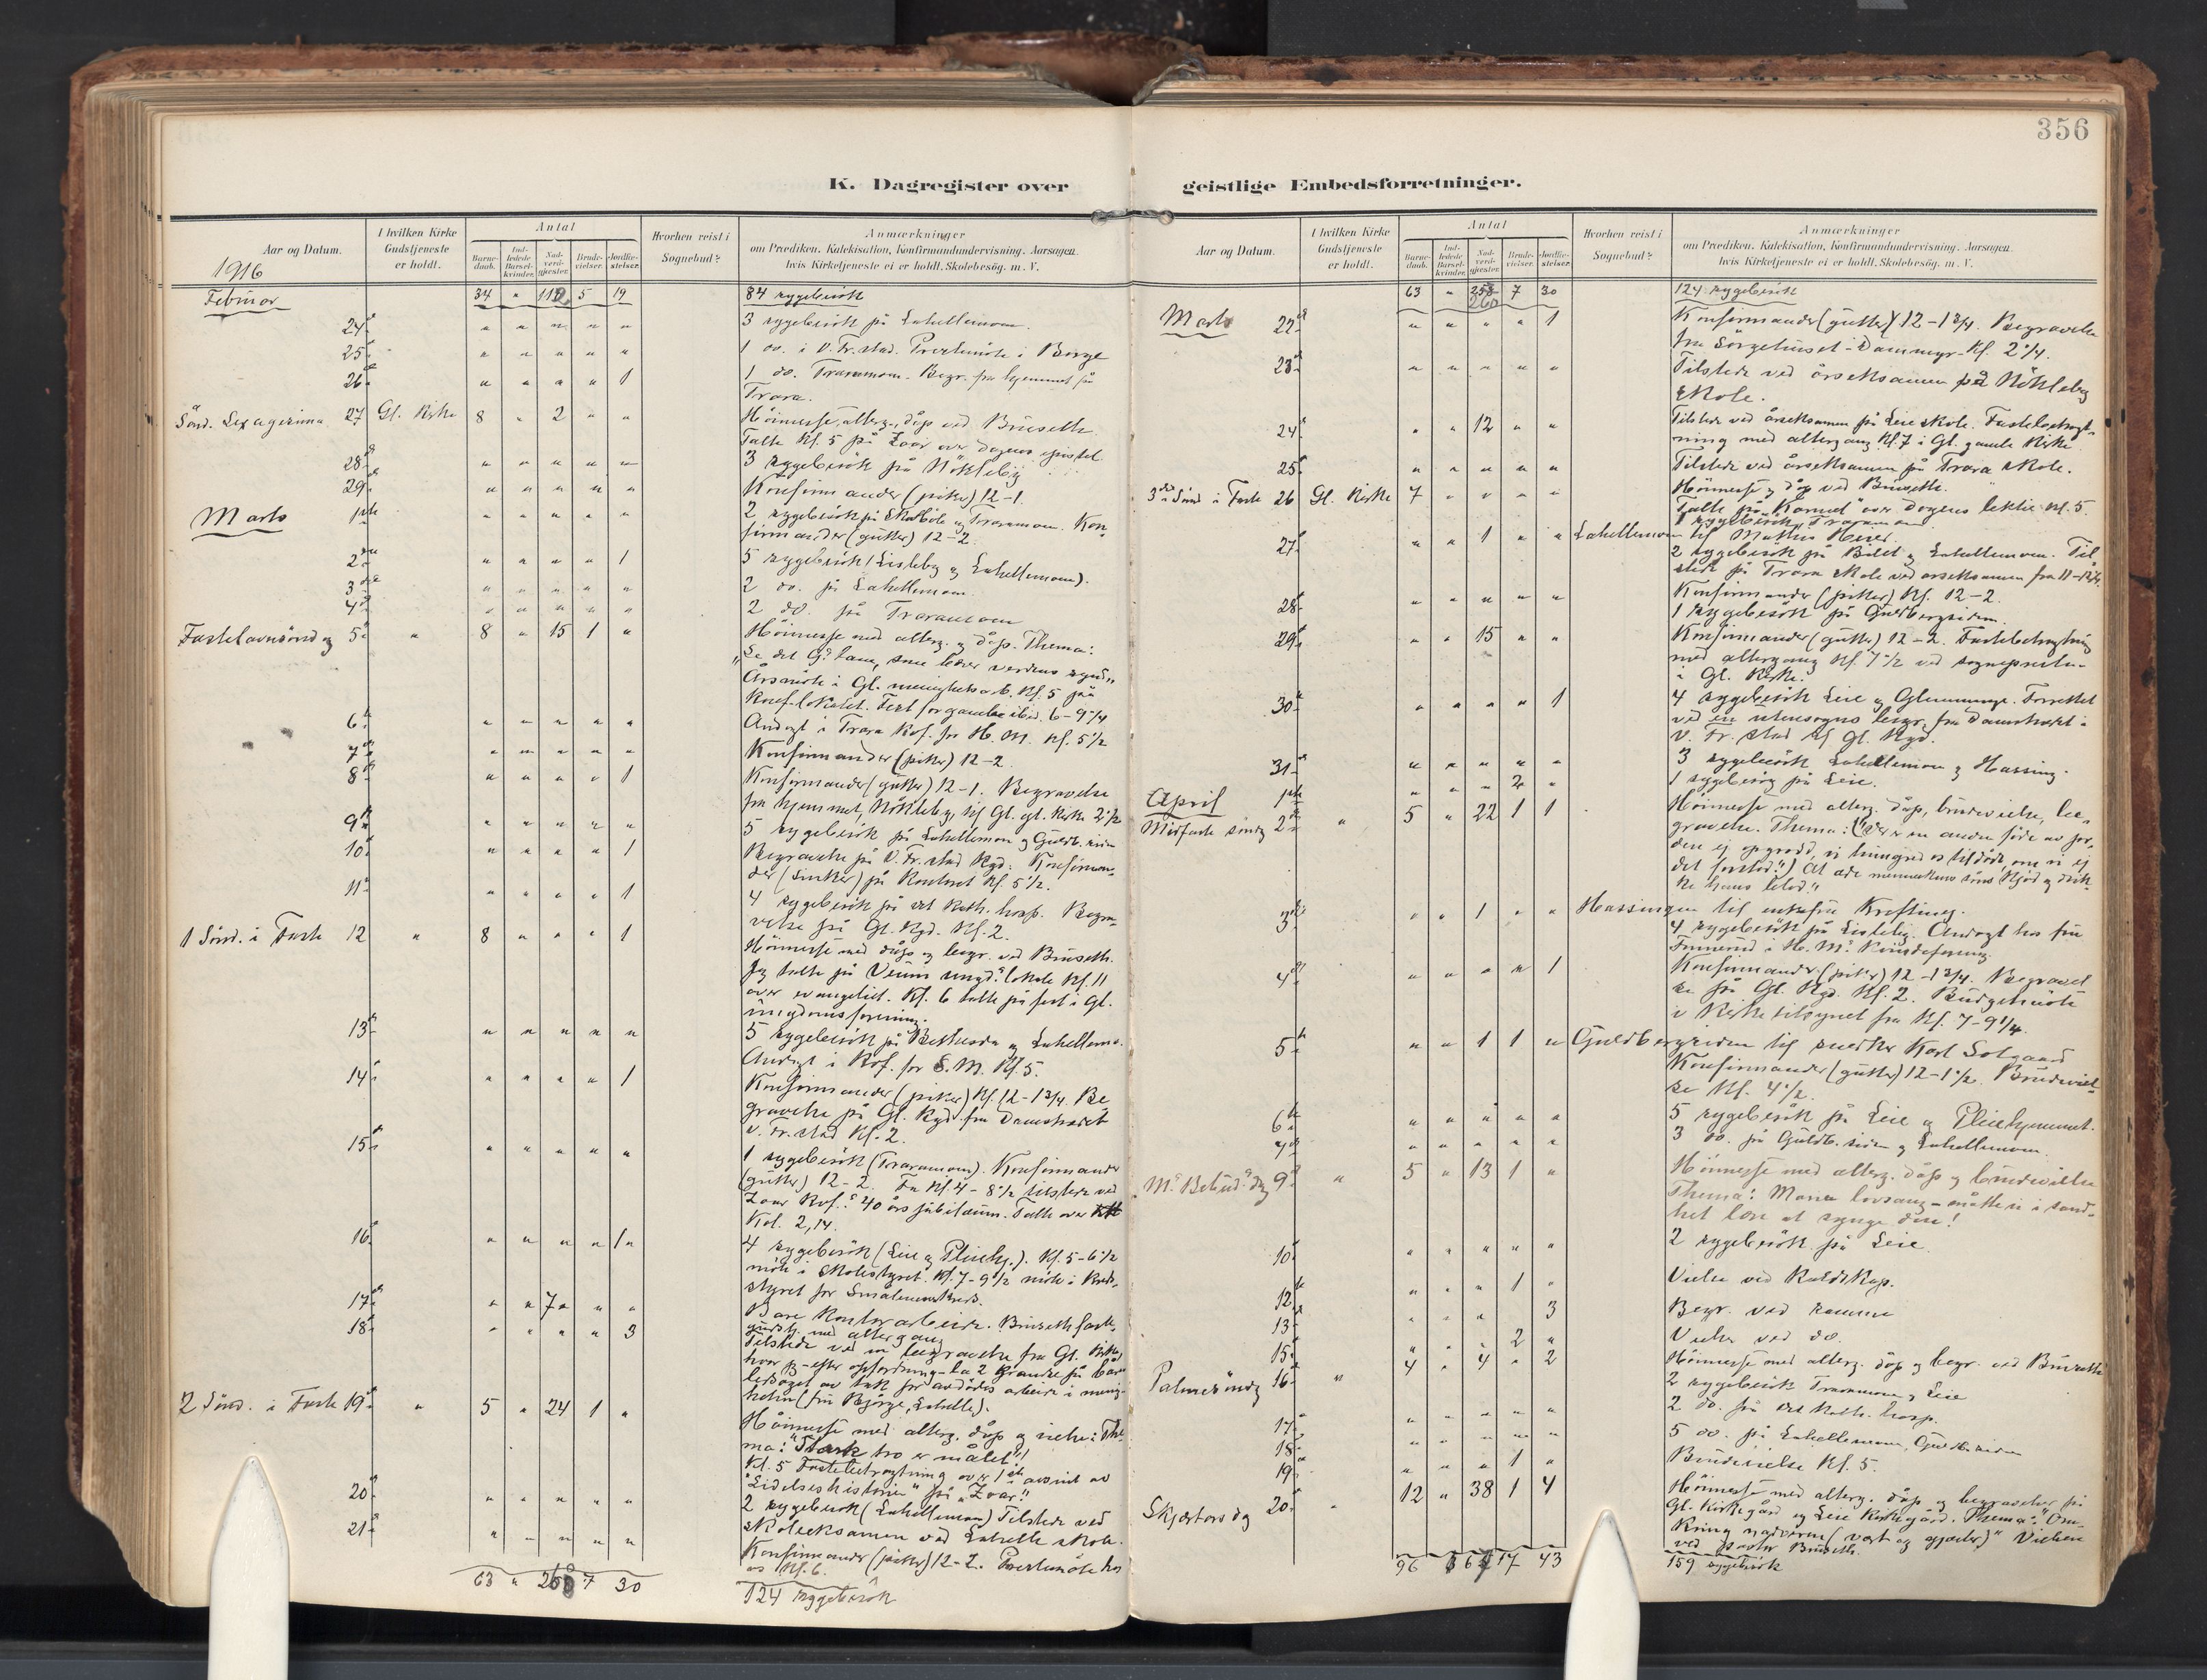 356
K. Dagregister over
Aar og Datum.
I hvilken Kirke Gudstjeneste er holdt.
Antal
Barne-daab.
Ind-ledede Barsel-kvinder.
Nad-verd-gjester.
Brude-vielser.
Jordfæ-stelser.
Hvorhen reist i Sognebud?
Anmærkninger
om Prædiken, Katekisation, Konfirmandundervisning, Aarsagen,
hvis Kirketjeneste ei er holdt, Skolebesøg, m. V.
1916
Februar 34 " 5 19 84 sygebesök
24 " " " " " 3 sygebesök på Lahellemoen.
25 " " " " " 1 do. i V. Fr.stad. Prestemöte i Borge
26 " " " " 1 1 do. Traramoen. Begr. fra hjemmet på
Trara.
Sönd. Sexagesima 27 Gl. Kirke 8 " 2 " " Höimesse, alterg., dåp ved Bruseth
Talte Kl. 5 på Zoar over dagens epistel
28 " " " " " 3 sygebesök på Nökleby
29 " " " " " Konfirmander (piker) 12-1.
Marts 1ste " " " " " 2 sygebesök på og Traramoen. Kon-
firmander (gutter) 12-2
2 " " " " 1 5 sygebesök (Lisleby og Lahellemoen).
3 " " " " " 2 do. på Lahellemoen
4 " " " " " 2 do. på Traramoen
Fastelavnsöndag 5 " 8 " 15 1 " Höimesse med alterg. og dåp. Thema:
"Se det Gs lam, som bærer verdens synd"
Årsmöte i Gl. menighets Kl. 5 på
Konf-lokalet. Fest for gamle ibid. 6-9 1/4
6 " " " " " Andagt i Trara Kof. for H. M. Kl. 5 1/2
7 " " " " " Konfirmander (piker) 12-2
8 " " " " 1 Konfirmander (gutter) 12-1. Begravelse
fra hjemmet, Nökleby, til Gl. gl. Kirke 2 1/2
9 " " " " " 5 sygebesök på Lahellemoen og Guldb.siden
10 " " " " 1 Begravelse på V. Fr.stad Kgd. Konfirman-
der (sinker) på Kontoret Kl. 5 1/2.
11 " " " " 1 4 sygebesök på det Kath. hosp. Begra-
velse på Gl. Kgd. Kl. 2.
1 Sönd. i Faste 12 " 8 " " " 1 Höimesse med dåp og begr. ved Bruseth.
Jeg talte på Veum ungd. lokale Kl. 11
over evangeliet. Kl. 6 talte på fest i Gl.
ungdomsforening.
13 " " " " " 5 sygebesök på Bethesda og Lahellemo.
Andagt i Kof. for S. M. Kl. 5.
14 " " " " 1 Konfirmander (piker) Kl. 12-1 3/4. Be
gravelse på Gl. Kgd. fra Damstrædet
V. Fr.stad Kl. 2.
15 " " " " " 1 sygebesök (Traramoen). Konfirmander
(gutter) 12-2. Fra Kl. 4-8 1/2 tilstede ved
Zoar Kof.s 40 års jubilæum. Talte over
Kol. 2,14.
16 " " " " 1 4 sygebesök (Leie og Pleiehj.). Kl. 5-6 1/2
möte i skolestyret. Kl. 7-9 1/2 möte i Kreds-
styret for Smålenene Kreds.
17 " " 7 " " Bare Kontorarbeide. Bruseth faste-
gudstj. med altergang
18 " " " " 3 Tilstede ved en begravelse fra Gl. Kirke
hvor jeg - efter opfordring - la 2 Kranse på båren
ledsaget av tak for avdödes arbeide i menig-
heten (fru Björge, Lahelle).
2 Sönd. i Faste 19 " 5 " 24 1 " Höimesse med alterg. dåp og vielse: The-
ma: "Stærk tro er målet"!
Kl. 5 Fastebetragtning over 1ste avsnit av
"Lidelseshistorien" på "Zoar".
20 " " " " " 2 sygebesök (Lahellemoen) Tilstede ved
skoleeksamen ved Lahelle skole.
21 " " " " " Konfirmander (piker) 12-2. Prestemöte hos
os Kl. 6.
63 " 7 30 124 sygebesök
geistlige Embedsforretninger.
Aar og Datum.
I hvilken Kirke Gudstjeneste er holdt.
Antal
Barne-daab.
Ind-ledede Barsel-kvinder.
Nad-verd-gjester.
Brude-vielser.
Jordfæ-stelser.
Hvorhen reist i Sognebud?
Anmærkninger
om Prædiken, Katekisation, Konfirmandundervisning, Aarsagen,
hvis Kirketjeneste ei er holdt, Skolebesøg, m. V.
63 " 258 260 7 30 124 sygebesök
Marts 22 " " " " 1 Konfirmander (gutter) 12-1 3/4. Begravelse
fra Sörgehuset - Dammyr - Kl. 2 1/4.
23 " " " " " Tilstede ved årseksamen på Nökleby
skole.
24 " " 12 " " Tilstede ved årseksamen på Leie skole. Fastebetragt-
ning med altergang Kl. 7 i Gl. gamle Kirke
25 " " " " " Tilstede ved årseksamen på Trara skole.
3die Sönd i Faste 26 Gl. Kirke 7 " " " " Höimesse og dåp ved Bruseth.
Talte på "Karmel" over dagens lektie Kl. 5.
1 sygebesök, Traramoen
27 " " 1 " " Lahellemoen til
2 sygebesök på og Lahellemoen. Til
stede på Trara skole ved årseksamen fra 11-12 1/2.
28 " " " " " Konfirmander (piker) Kl. 12-2.
1 sygebesök på Guldbergsiden.
29 " " 15 " " Konfirmander (gutter) 12-2. Fastebetragtning
med altergang Kl. 7 1/2 ved sognepresten
i Gl. Kirke.
30 " " " " 1 4 sygebesök Leie og Glemminge. Forrettet
ved en utensogns begr. fra Damstrædet i
V. Fr.stad til Gl. Kgd.
31 " " " " " 3 sygebesök Lahellemoen og Hassing.
April 1ste " " " 2 " 1 sygebesög på Leie.
Midfaste söndag 2 " 5 " 22 1 1 Höimesse med alterg. dåp, brudevielse, be-
gravelse. Thema: ("Der er en anden föde av jor-
den ej opgrodd, vi hungred os tildöde, om vi ej
det forstod.") At æde menneskens söns Kjöd og drik-
ke hans blod."
3 " " 1 " " Hassingen til enkefru Krefting.
4 sygebesök på Lisleby. Andagt hos fru
i H. M. Kvindeforening.
4 " " " " 1 Konfirmander (piker) 12-1 3/4. Begravel
se på Gl. Kgd. Kl. 2. Budgetmöte
i Kirketilsynet fra Kl. 7-9 1/4.
5 " " 1 1 " Guldbergsiden til snedker Karl Solgaard
Konfirmander (gutter) 12-1 1/2. Brudeviel-
se Kl. 4 1/2.
6 " " " " " 5 sygebesök på Leie og Pleiehjemmet.
7 " " " " " 3 do. på Guldb. siden og Lahellemoen.
M. Bebud. dag 9 " 5 " 13 1 " Höimesse med alterg. dåp og brudevielse
Thema: Marias lovsang - måtte vi i sand-
het lære at synge den!
10 " " " " " 2 sygebesök på Leie.
12 " " " 1 " Vielse ved Kap.
13 " " " 3 Begr. ved samme
15 " " " 2 " Vielser ved do.
Palmesöndag 16 " 4 " 4 " 2 Höimesse med alterg. dåp og begr. ved Bruseth
2 sygebesök Traramoen og Leie
17 " " " " " 2 do. på det Kath. hosp.
18 " " " " " 5 do. på Lahellemoen, Guldb. siden
19 " " " 1 " Brudevielse Kl. 5.
Skjærtorsdag 20 " 12 " 38 1 4 Höimesse med alterg. dåp og begravelser på
Gl. Kirkegård og Leie Kirkegård. Thema: "Om-
kring nadveren (vert og gjæster)" Vielsen
ved pastor Bruseth.
96 17 43 159 sygebesök